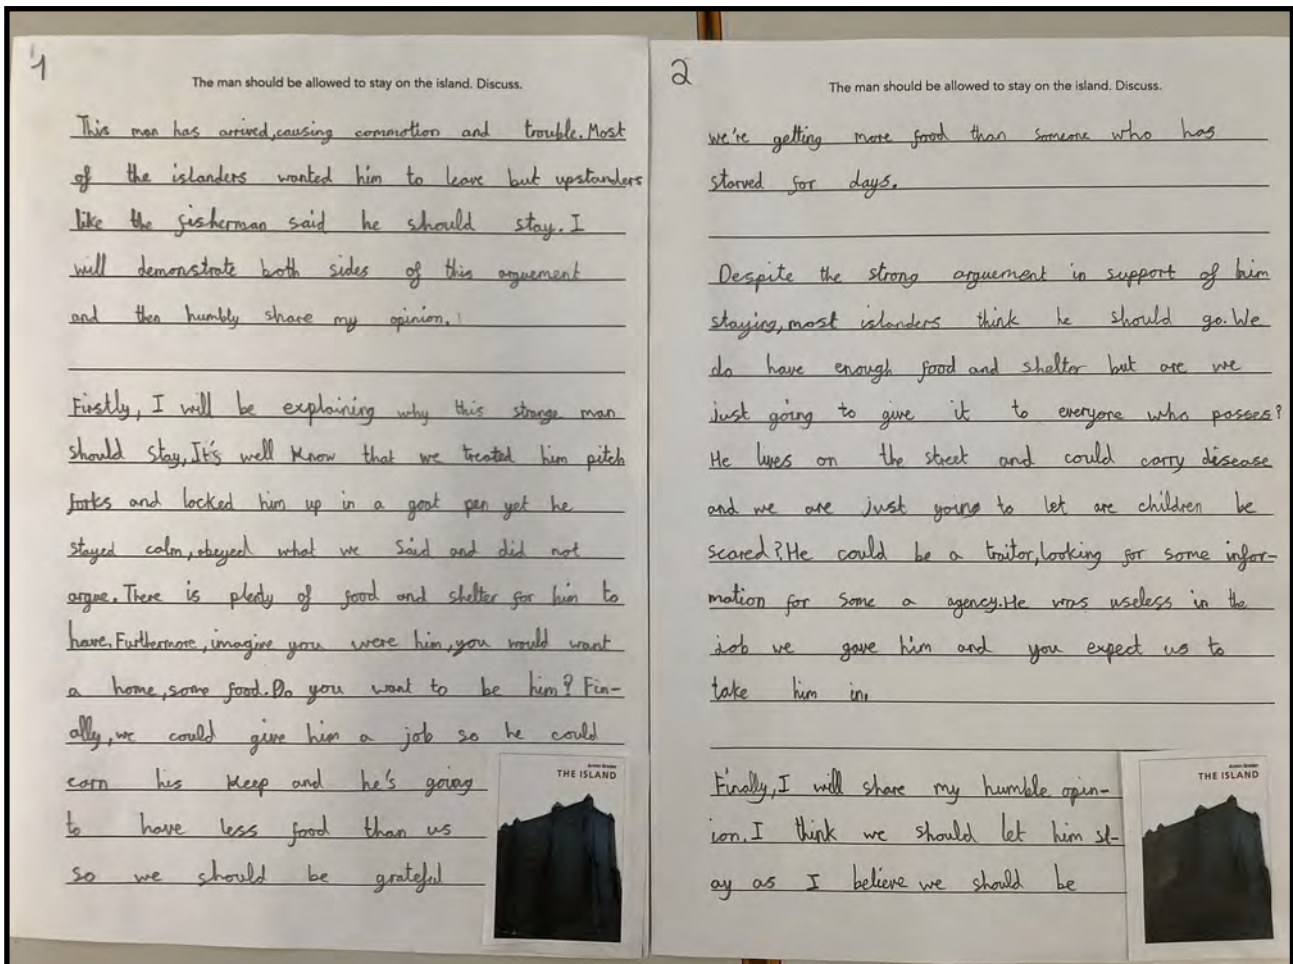 1
The man should be allowed to stay on the island. Discuss.
This man has arrived, causing commotion and trouble. Most
of the islanders wanted him to leave but upstanders
like the fisherman said he should stay. I
will demonstrate both sides of this arguement
and then humbly share my opinion.
Firstly, I will be explaining why this strange man
should stay, It's well know that we treated him pitch
forks and locked him up in a goat pen yet he
stayed calm, obeyed what we said and did not
argue. There is plenty of food and shelter for him to
have. Furthermore, imagine you were him, you would want
a home, some food. Do you want to be him? Fin-
ally, we could give him a job so he could
earn his keep and he's going
to have less food than us
so we should be grateful
THE ISLAND
2
The man should be allowed to stay on the island. Discuss.
we're getting more food than someone who has
starved for days.
Despite the strong arguement in support of him
staying, most islanders think he should go. We
do have enough food and shelter but are we
just going to give it to everyone who passes?
He lives on the street and could carry disease
and we are just going to let are children be
scared? He could be a traitor, looking for some infor-
mation for some a agency. He was useless in the
job we gave him and you expect us to
take him in.
Finally, I will share my humble opin-
ion. I think we should let him st-
ay as I believe we should be
THE ISLAND